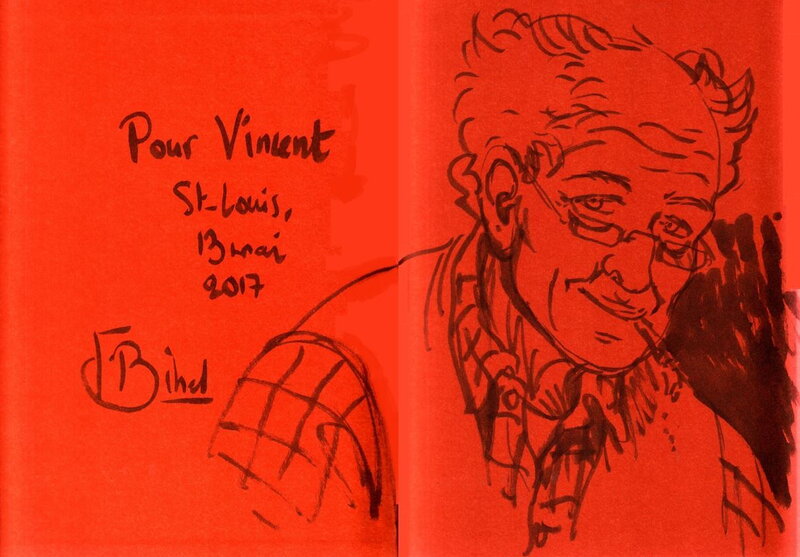 Pour Vincent
St-Louis,
13 mai
2017
FBihel